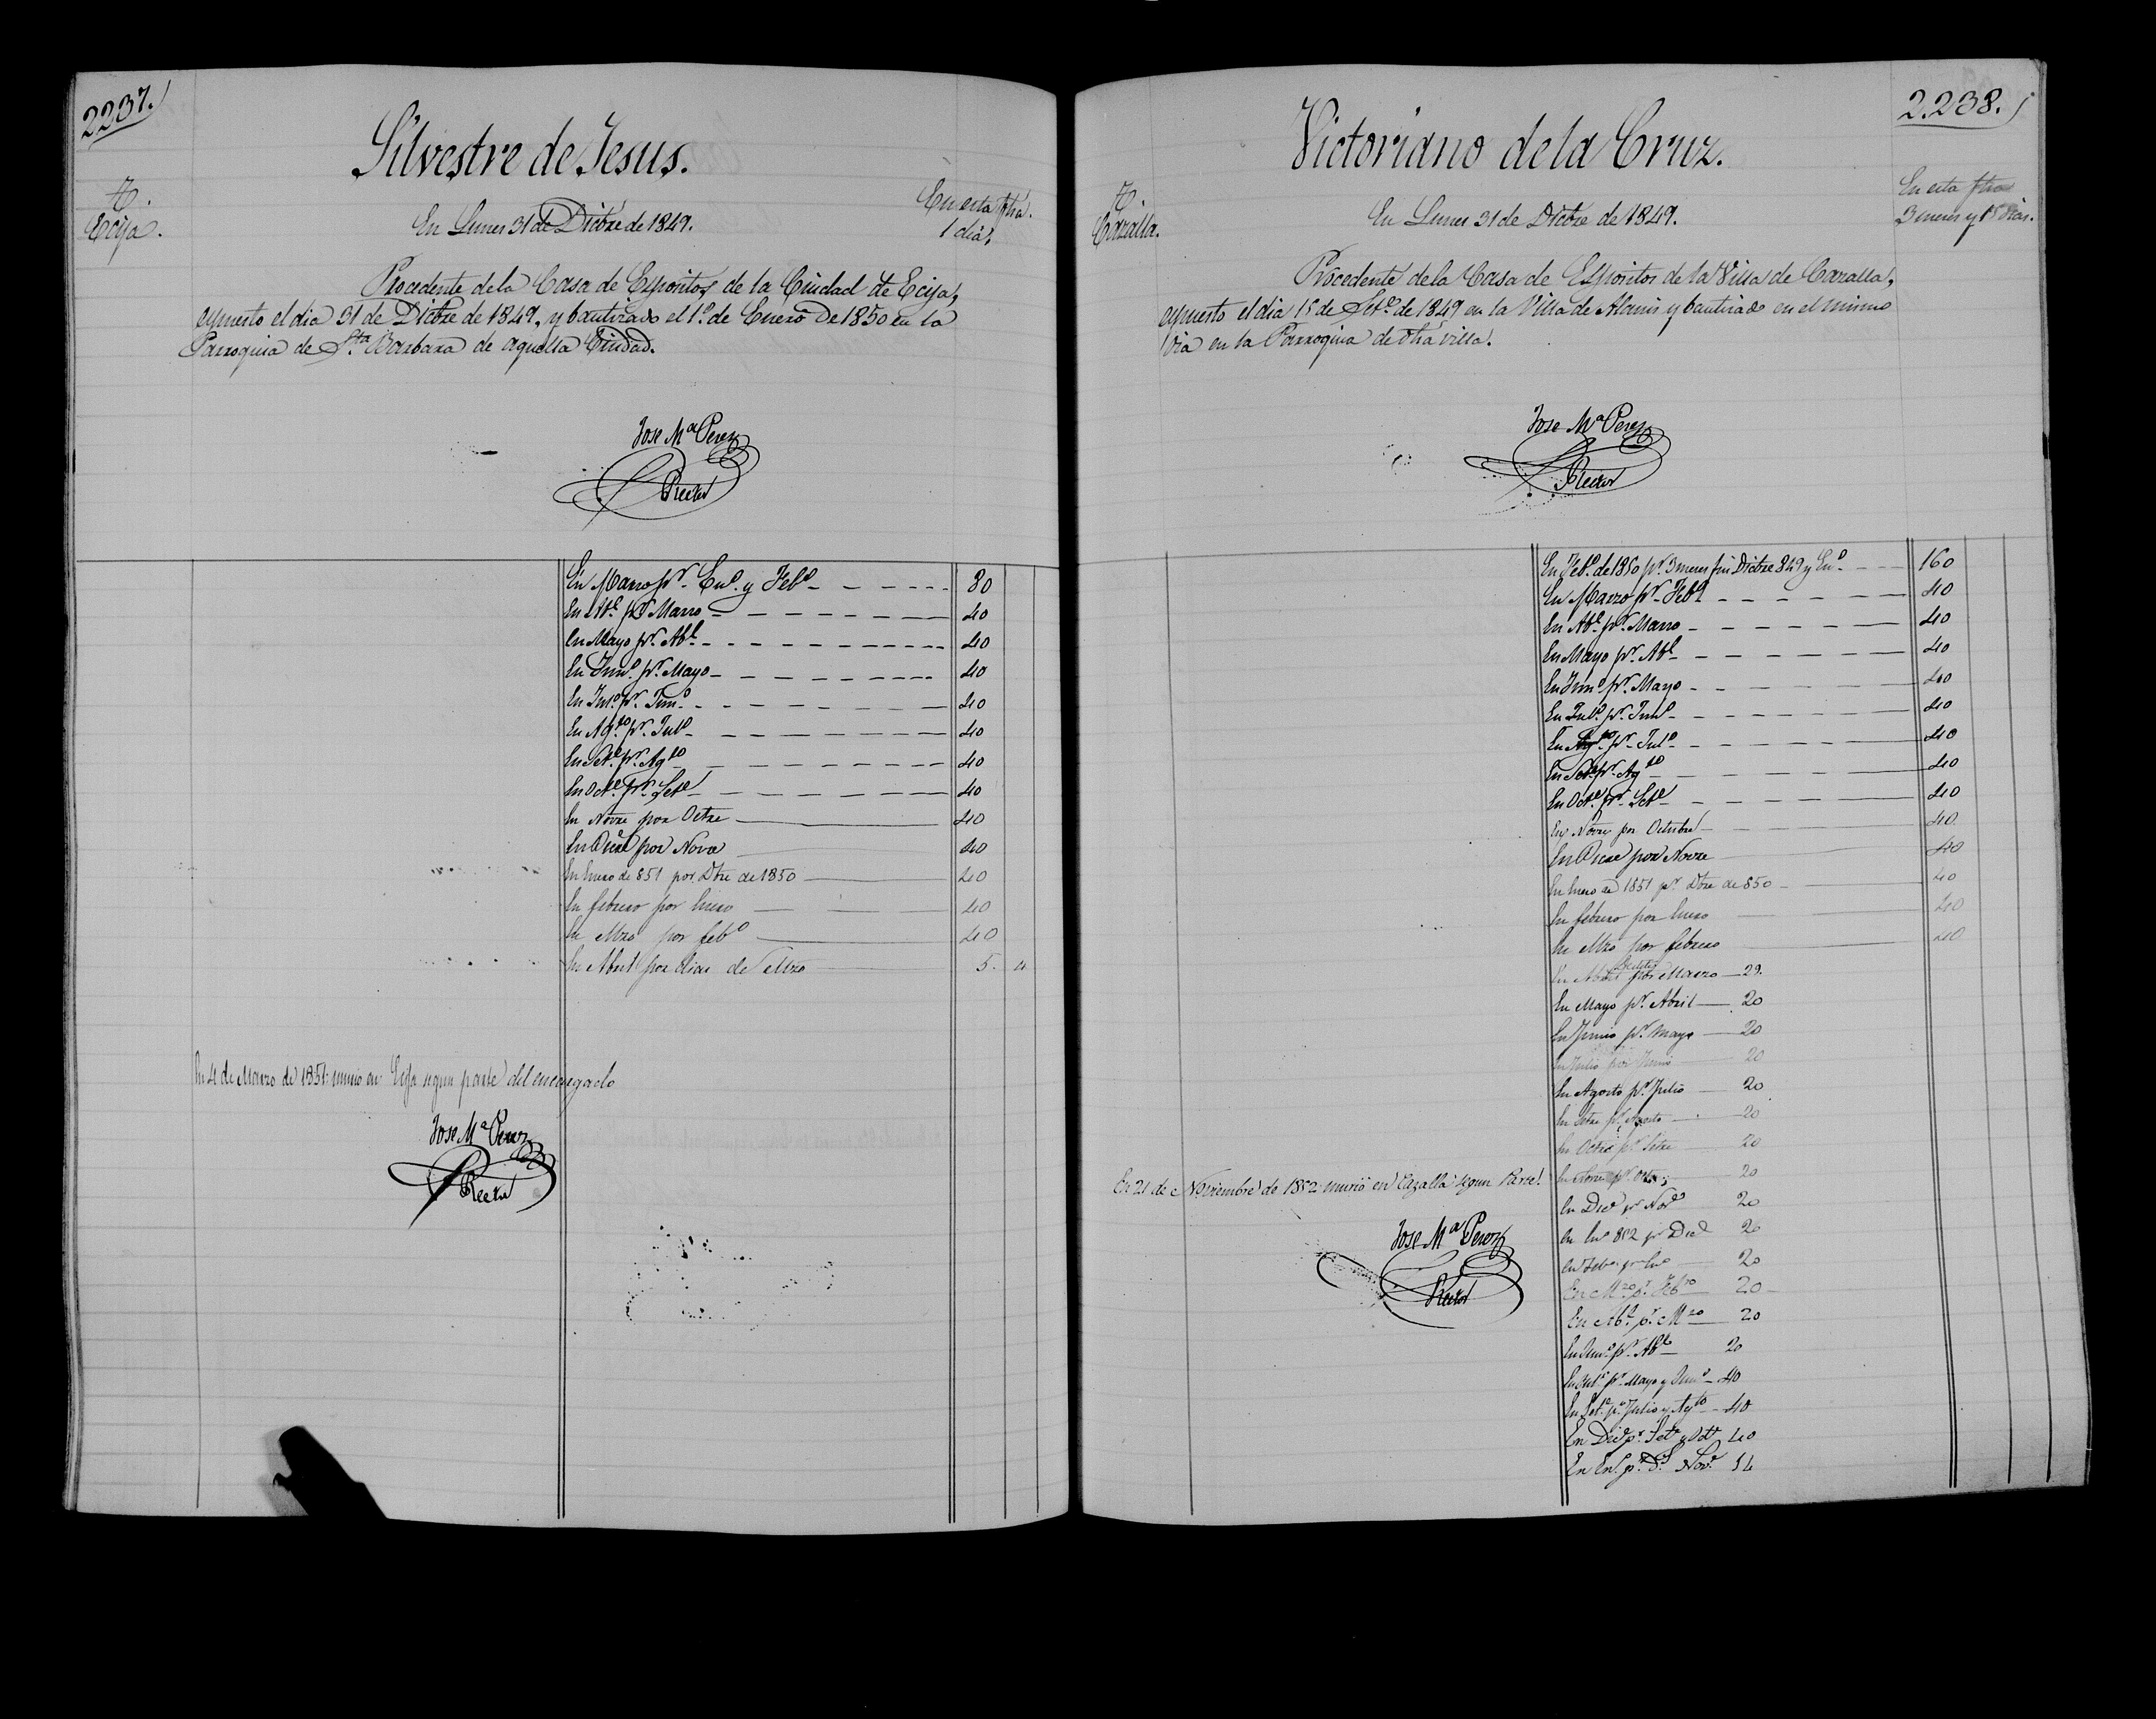 2237.
Silvestre de Jesus.
H.
Ecija.
En Lunes 31 de Dictre de 1849.
En esta fhã.
1 dia.
Procedente de la Casa de Espositos de la Ciudad de Ecija,
espuesto el dia 31 de Dictre de 1849, y bautizado el 1º de Enero de 1850 en la
Parroquia de Sta Barbara de aquella Ciudad.
Jose Mª Perez
Rector
En Marzo pr. Enº. y Febº 80
En Abl. pr Marzo 40
En Mayo pr. Abl. 40
En Junº. pr. Mayo 40
En Julº. pr. Junº 40
En Agto. pr. Julº 40
En Sete. pr. Agto 40
En Octe. pr. Sete 40
En Novre por Octre 40
En Dicre por Novre 40
En Enero de 851 por Dbre de 1850 40
En febrero por Enero 40
En Mzo por febº 40
En Abril por dias de Mzo 5. 4
En 4 de Marzo de 1851: murio en Ecija segun parte del encargado
Jose Mª Perez
Rector
2.238.
Victoriano de la Cruz.
H.
Cazalla.
En Lunes 31 de Dictre de 1849.
En esta fhã
3 meses y 15 dias.
Procedente de la Casa de Espositos de la Villa de Cazalla,
espuesto el dia 15 de Sete. de 1849 en la Villa de Alanis y bautizado en el mismo
dia en la Parroquia de dhã villa.
Jose Mª Perez
Rector
En Febº. de 1850 pr. 3 meses fin Dictre 849 y Enº. 160
En Marzo pr. Febº 40
En Abl. pr. Marzo 40
En Mayo pr. Abl 40
En Junº pr. Mayo 40
En Julº. pr. Junº 40
En Agto. pr. Julº 40
En Sete. pr. Agto 40
En Octe. pr. Sete 40
En Novre por Octubre 40.
En Dicre por Novre 40
En Enero de 1851 pr. Dbre de 850 40
En febrero por Enero 40
En Mzo por febrero 40
En Abril por Marzo 29.
En Mayo pr. Abril 20
En Junio pr. Mayo 20
En Julio por Junio 20
En Agosto pr. Julio 20
En Setre pr. Agosto 20
En Octre pr. Setre 20
En Novre pr. Octre 20
En Dice pr Nove 20
En Enº 852 pr Dice 20
En Febº pr Enº 20
En Mzo. pr. Febro 20
En Abl. pr. Mzo 20
En Junº. pr. Abl 20
En Julº. pr. Mayo y Junº 40
En Sete. pr. Julio y Agto 40
En Dice. pr. Sete y Octe 40
En En. pr. Ds. Nove. 14
En 21 de Noviembre de 1852: murió en Cazalla segun Parte.
Jose Mª Perez
Rector